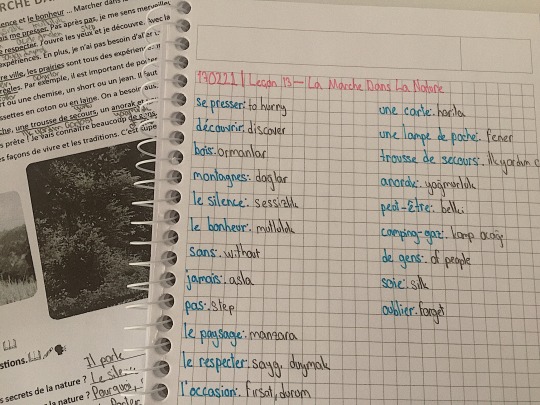 RCHE DA
ence et le bonheur ... Marcher dans
me presser. Pas après pas, je me sens merveilleu
respecter. J'ouvre les yeux et je découvre. Avec la
expériences. En plus, je n'ai pas besoin d'aller
les prairies sont tous des expériences
Par exemple, il est important de porter
ou une chemise, un short ou un jean. Il faut
ssettes en coton ou en laine. On a besoin aussi
che, une trousse de secours, un anorak et
s prête ! Je vais connaître beaucoup de gens,
s façons de vivre et les traditions. C'est supe
stions.
Il parle
s secrets de la nature ? Le sile
la nature ? Pourquoi,
Parler
170221 | Leçon 13 — La Marche Dans La Nature
se presser: to hurry
découvrir: discover
bois: ormanlar
montagnes: dağlar
le silence: sessizlik
le bonheur: mutluluk
sans: without
jamais: asla
pas: step
le paysage: manzara
le respecter: saygı duymak
l'occasion: fırsat, durum
une carte: harita
une lampe de poche: fener
trousse de secours: ilkyardım ç
anorak: yağmurluk
peut-être: belki
camping-gaz: kamp ocağı
de gens: of people
soie: silk
oublier: forget